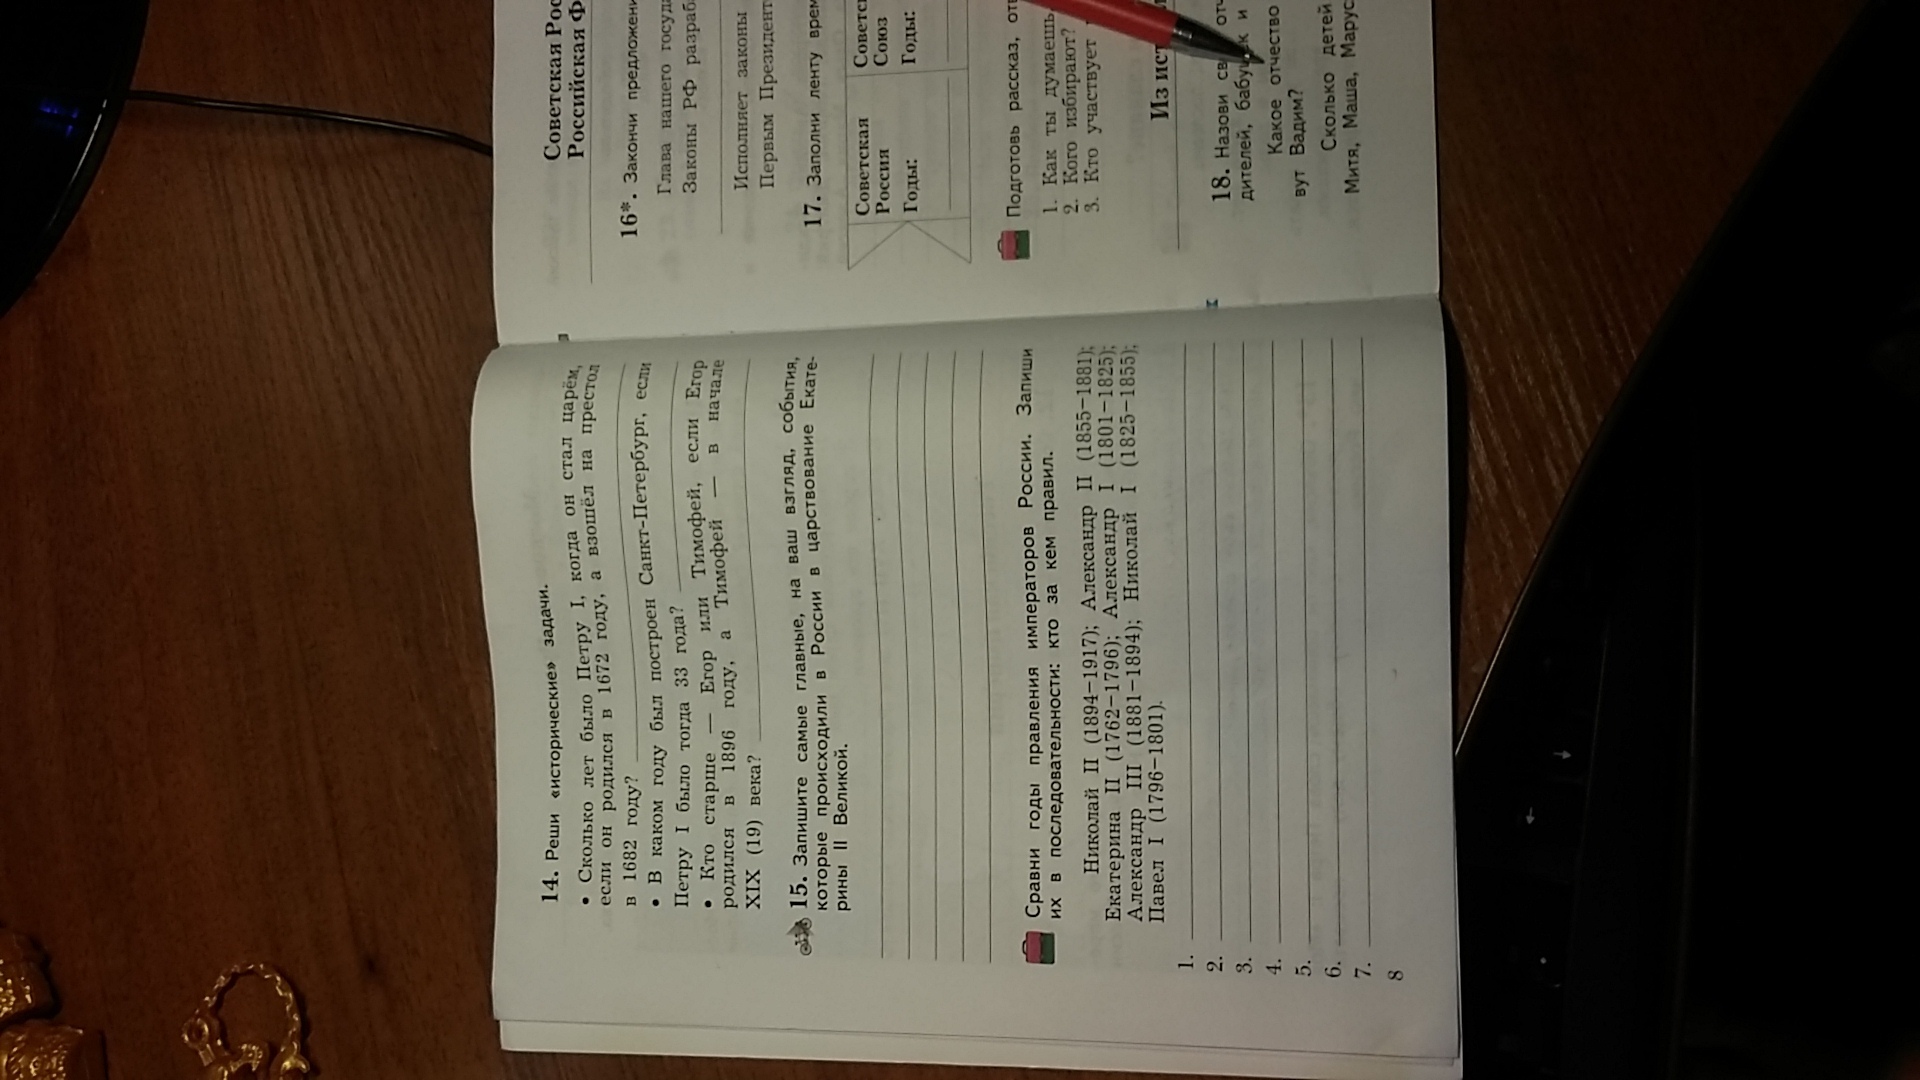 14. Реши «исторические» задачи.
• Сколько лет было Петру I, когда он стал царём,
если он родился в 1672 году, а взошёл на престол
в 1682 году?
• В каком году был построен Санкт-Петербург, если
Петру I было тогда 33 года?
• Кто старше — Егор или Тимофей, если Егор
родился в 1896 году, а Тимофей — в начале
XIX (19) века?
15. Запишите самые главные, на ваш взгляд, события,
которые происходили в России в царствование Екате-
рины II Великой.
Сравни годы правления императоров России. Запиши
их в последовательности: кто за кем правил.
Николай II (1894–1917); Александр II (1855–1881);
Екатерина II (1762–1796); Александр I (1801–1825);
Александр III (1881–1894); Николай I (1825–1855);
Павел I (1796–1801).
1.
2.
3.
4.
5.
6.
7.
8
Советская Рос
Российская Ф
16*. Закончи предложени
Глава нашего госуда
Законы РФ разраба
Исполняет законы
Первым Президент
17. Заполни ленту врем
Советская
Россия
Годы:
Советск
Союз
Годы:
Подготовь рассказ, отв
1. Как ты думаешь,
2. Кого избирают?
3. Кто участвует
Из ист
18. Назови св отч
дителей, бабушек и
Какое отчество
вут Вадим?
Сколько детей
Митя, Маша, Марус